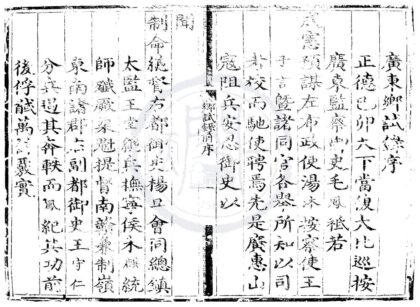 廣東鄉試錄序
正德己卯天下當復大比巡按
廣東監察御史毛鳳祗若
成憲預謀左布政使湯沐按察使王
子言暨諸同官各舉所知以司
考校而馳使聘焉先是廣惠山
寇阻兵安忍御史以
鄉試錄前序
聞
制命總督右都御史楊旦會同總鎮
太監王堂總兵撫寧侯朱麒統
師殲厥渠魁提督南贛兼制嶺
東南諸郡右副都御史王守仁
分兵遏其奔軼而鳳紀其功前
後俘馘萬計覈實